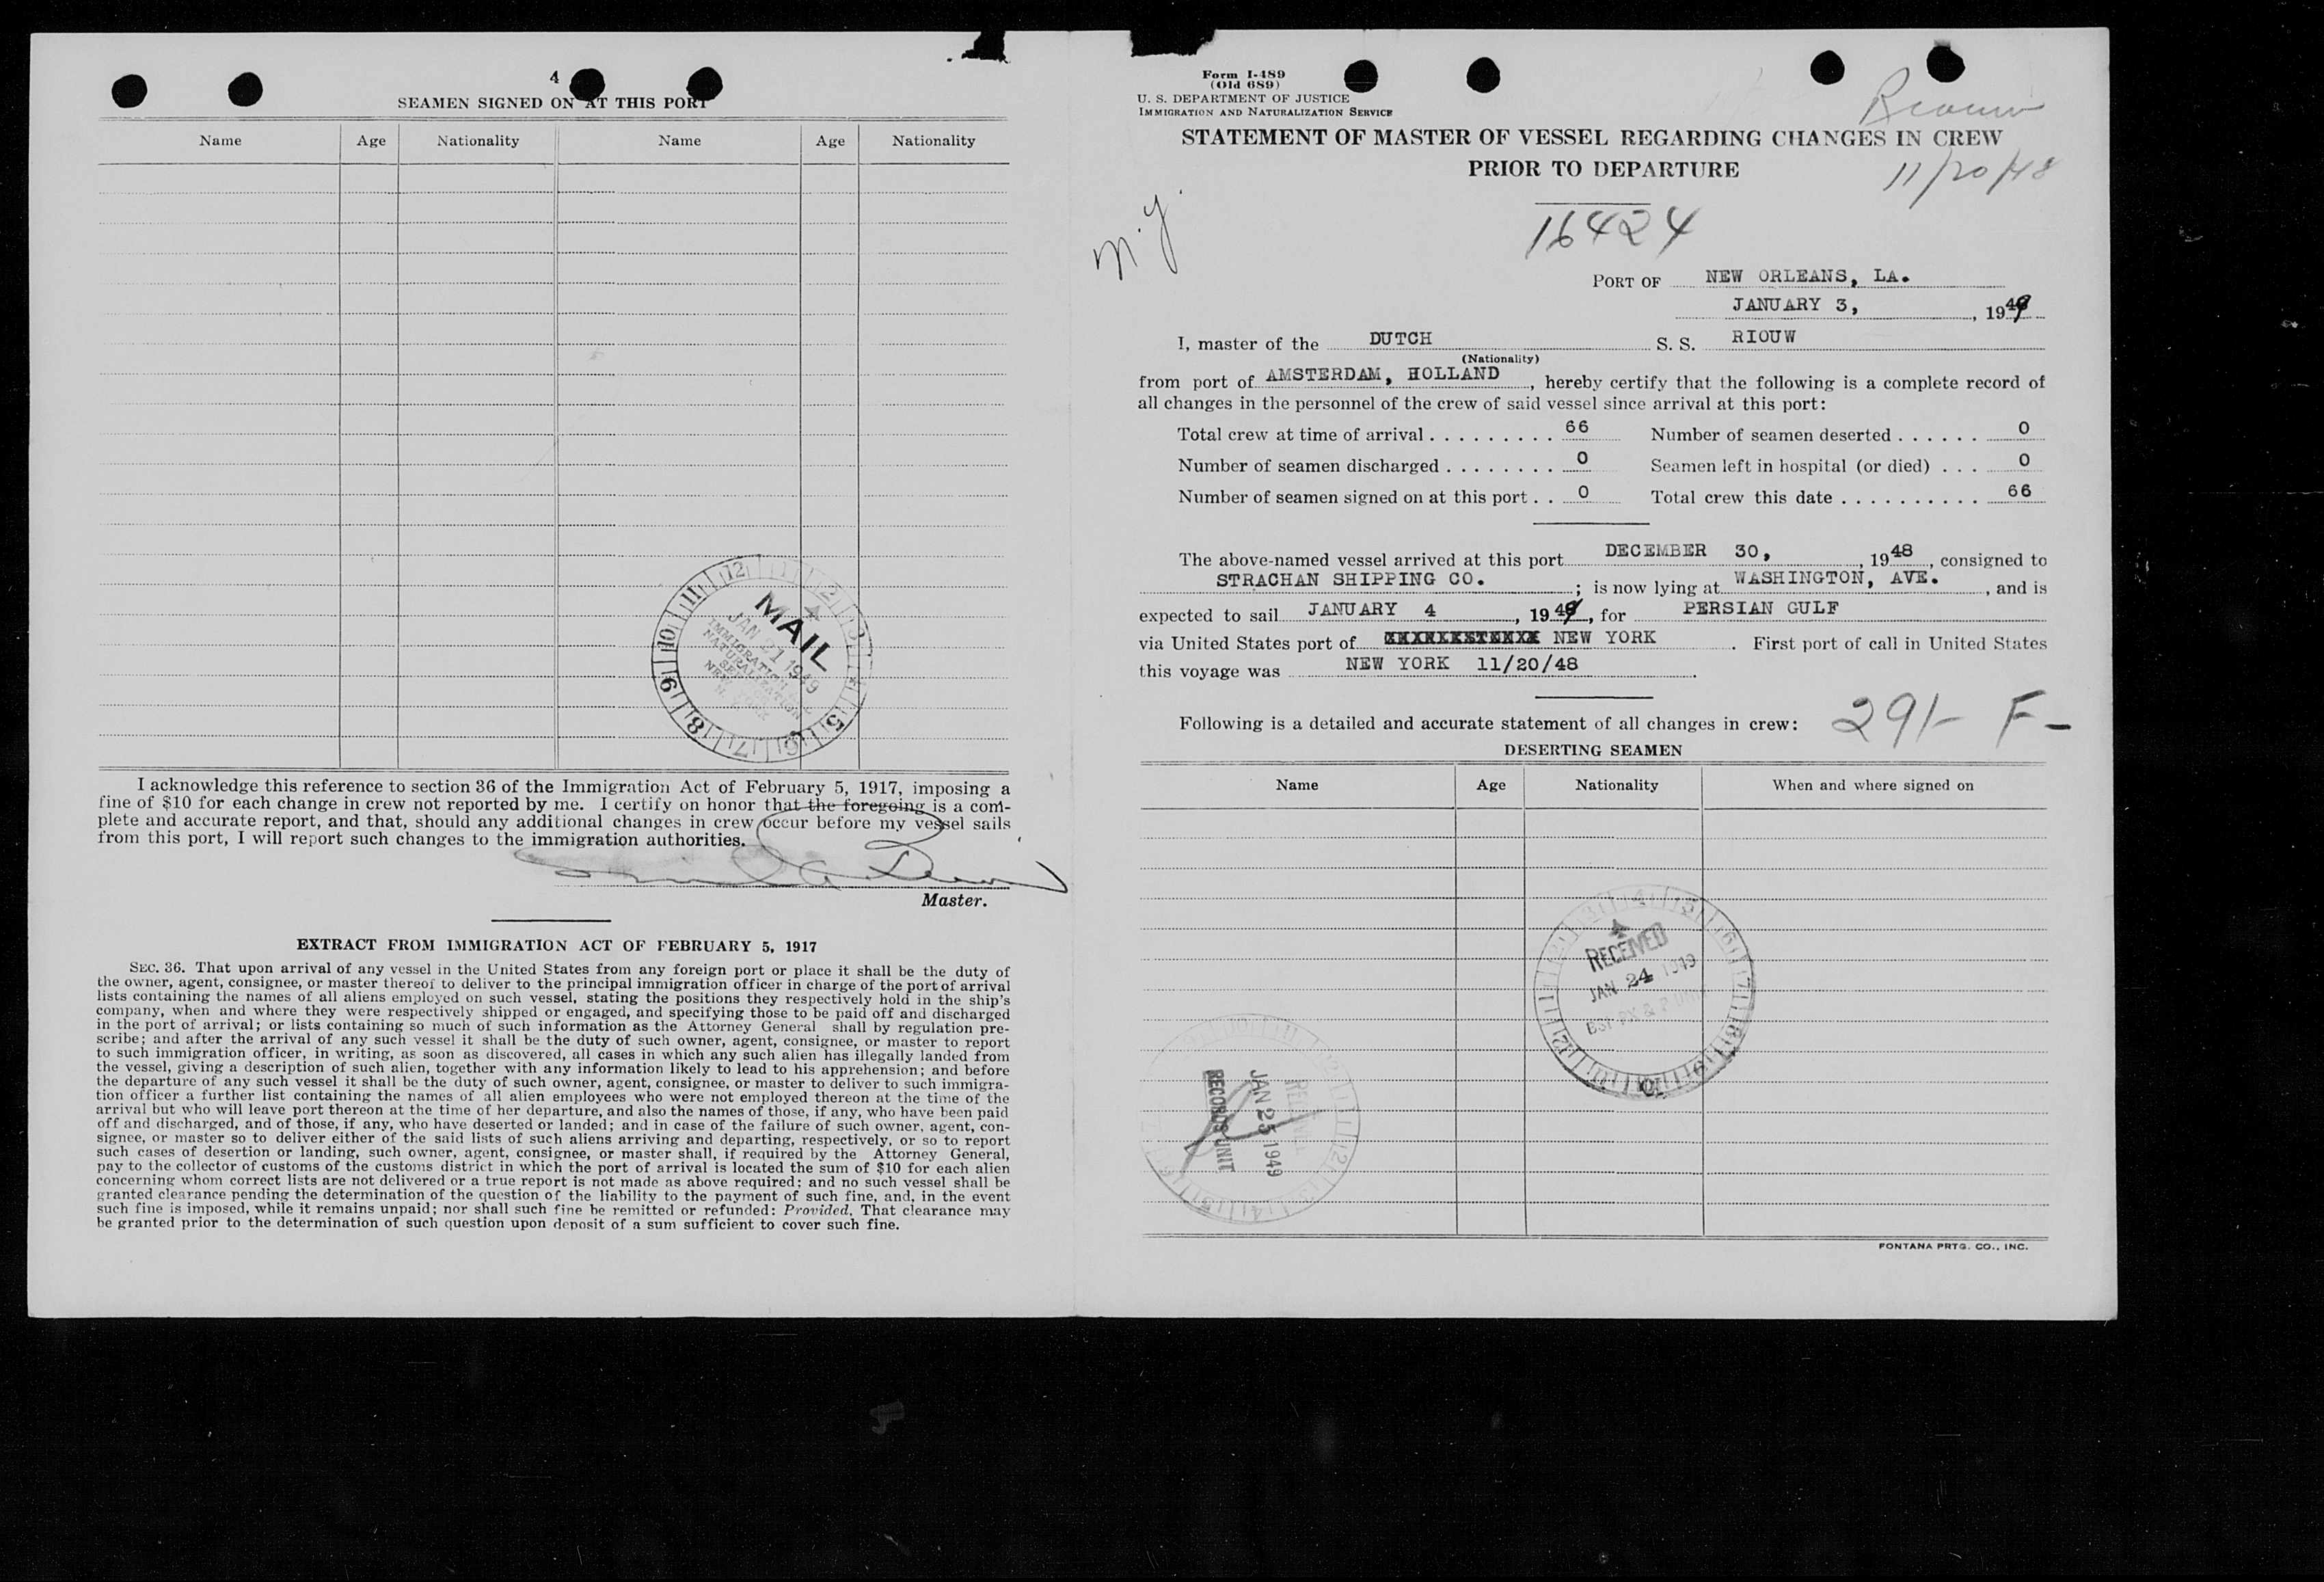 4
SEAMEN SIGNED ON AT THIS PORT
Name Age Nationality Name Age Nationality
MAIL
JAN 21 1949
IMMIGRATION &
NATURALIZATION
I acknowledge this reference to section 36 of the Immigration Act of February 5, 1917, imposing a
fine of $10 for each change in crew not reported by me. I certify on honor that the foregoing is a com-
plete and accurate report, and that, should any additional changes in crew occur before my vessel sails
from this port, I will report such changes to the immigration authorities.
Master.
EXTRACT FROM IMMIGRATION ACT OF FEBRUARY 5, 1917
SEC. 36. That upon arrival of any vessel in the United States from any foreign port or place it shall be the duty of
the owner, agent, consignee, or master thereof to deliver to the principal immigration officer in charge of the port of arrival
lists containing the names of all aliens employed on such vessel, stating the positions they respectively hold in the ship's
company, when and where they were respectively shipped or engaged, and specifying those to be paid off and discharged
in the port of arrival; or lists containing so much of such information as the Attorney General shall by regulation pre-
scribe; and after the arrival of any such vessel it shall be the duty of such owner, agent, consignee, or master to report
to such immigration officer, in writing, as soon as discovered, all cases in which any such alien has illegally landed from
the vessel, giving a description of such alien, together with any information likely to lead to his apprehension; and before
the departure of any such vessel it shall be the duty of such owner, agent, consignee, or master to deliver to such immigra-
tion officer a further list containing the names of all alien employees who were not employed thereon at the time of the
arrival but who will leave port thereon at the time of her departure, and also the names of those, if any, who have been paid
off and discharged, and of those, if any, who have deserted or landed; and in case of the failure of such owner, agent, con-
signee, or master so to deliver either of the said lists of such aliens arriving and departing, respectively, or so to report
such cases of desertion or landing, such owner, agent, consignee, or master shall, if required by the Attorney General,
pay to the collector of customs of the customs district in which the port of arrival is located the sum of $10 for each alien
concerning whom correct lists are not delivered or a true report is not made as above required; and no such vessel shall be
granted clearance pending the determination of the question of the liability to the payment of such fine, and, in the event
such fine is imposed, while it remains unpaid; nor shall such fine be remitted or refunded: Provided, That clearance may
be granted prior to the determination of such question upon deposit of a sum sufficient to cover such fine.
Form I-489
(Old 689)
U. S. DEPARTMENT OF JUSTICE
IMMIGRATION AND NATURALIZATION SERVICE
STATEMENT OF MASTER OF VESSEL REGARDING CHANGES IN CREW
PRIOR TO DEPARTURE
11/20/48
16424
n.y.
PORT OF NEW ORLEANS, LA.
JANUARY 3, , 1949
I, master of the DUTCH S. S. RIOUW
(Nationality)
from port of AMSTERDAM, HOLLAND, hereby certify that the following is a complete record of
all changes in the personnel of the crew of said vessel since arrival at this port:
Total crew at time of arrival . . . . . . . . . 66 Number of seamen deserted . . . . . . 0
Number of seamen discharged . . . . . . . . 0 Seamen left in hospital (or died) . . . 0
Number of seamen signed on at this port . . 0 Total crew this date . . . . . . . . . . 66
The above-named vessel arrived at this port DECEMBER 30, , 1948, consigned to
STRACHAN SHIPPING CO. ; is now lying at WASHINGTON, AVE. , and is
expected to sail JANUARY 4 , 1949, for PERSIAN GULF
via United States port of NEW YORK . First port of call in United States
this voyage was NEW YORK 11/20/48 .
Following is a detailed and accurate statement of all changes in crew:
291- F-
DESERTING SEAMEN
Name Age Nationality When and where signed on
RECEIVED
JAN 24 1949
RECEIVED
JAN 25 1949
RECORDS UNIT
FONTANA PRTG. CO., INC.